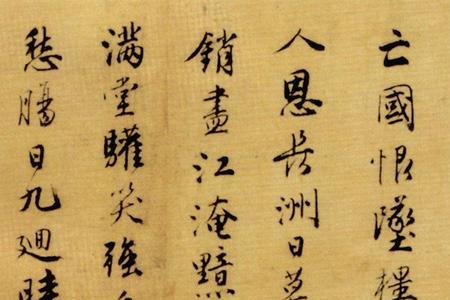 亡國恨墜樓
人恩長洲日暮
銷盡江淹黯
滿堂驩笑強
愁腸日九迴